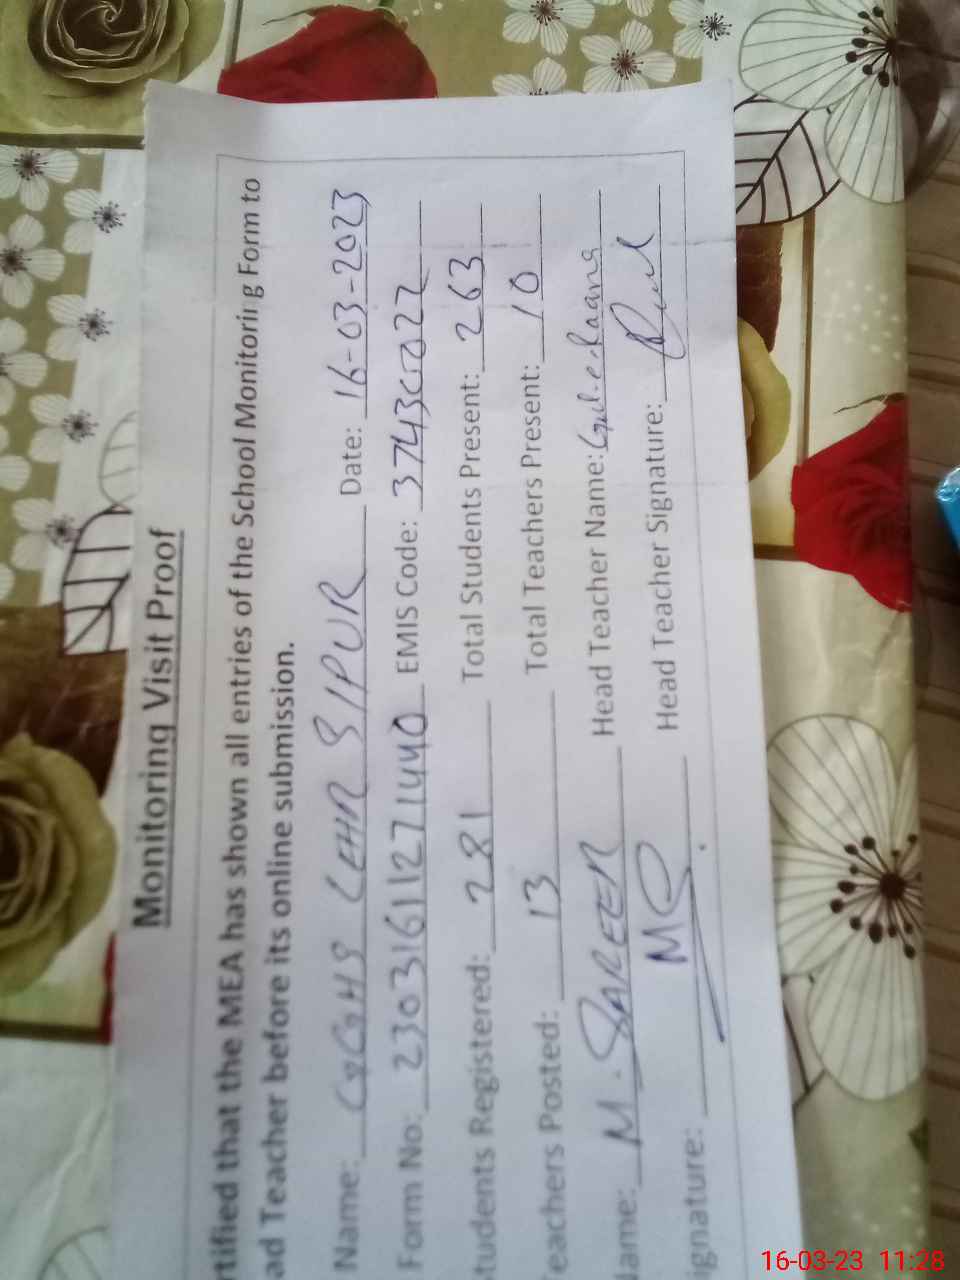 Monitoring Visit Proof
rtified that the MEA has shown all entries of the School Monitoring Form to
ad Teacher before its online submission.
Name: GGHS LEHR SIPUR Date: 16-03-2023
Form No: 23031611271440 EMIS Code:
tudents Registered: 281 Total Students Present: 263
eachers Posted: 13 Total Teachers Present: 10
Name: M. SAREER Head Teacher Name: Gul-e-Raana
ignature: Head Teacher Signature:
16-03-23 11:28